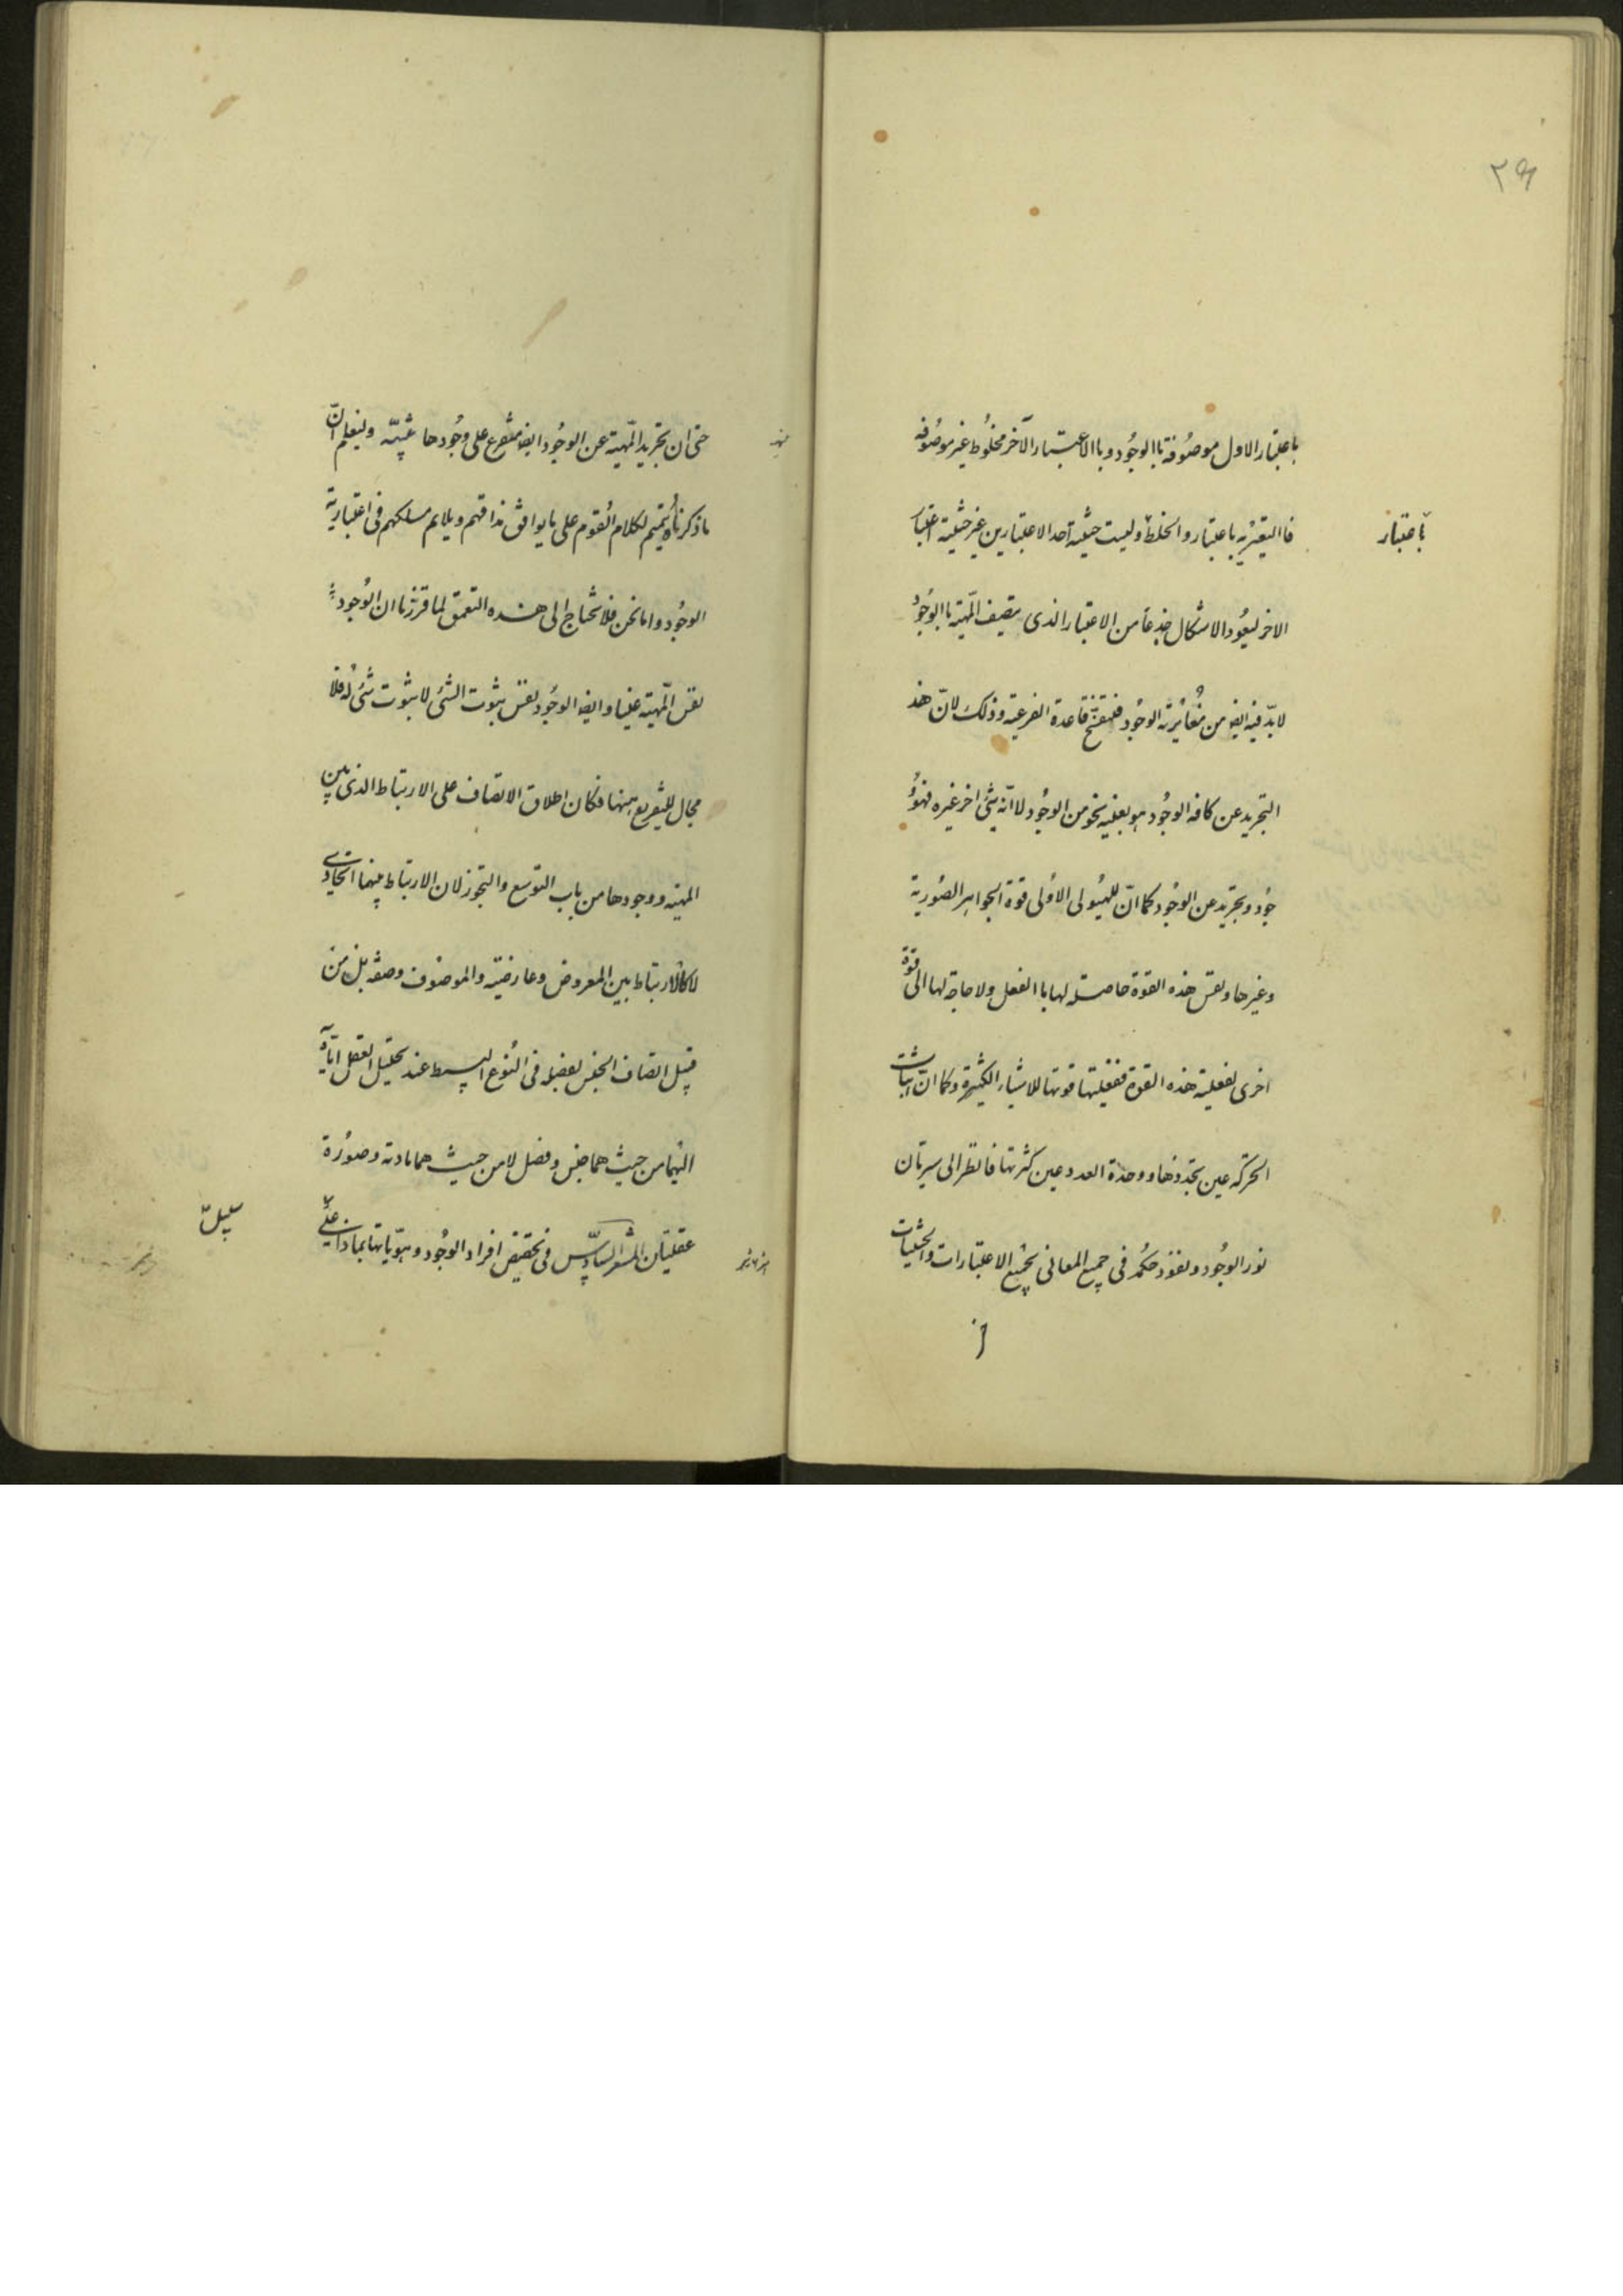 ٣٩
باعتبار الاول موصوفة باالوجود وباالاعتبار الآخر مخلوط غير موصوفه
فاالتعريه باعتبار والخلط وليست حيثية احد الاعتبارين غير حيثية اعتبار
باعتبار
الاخر ليعود الاشكال جذعا من الاعتبار الذى يتصف المهية باالوجود
لابد فيه ايض من مغايرته الوجود فتنفسخ قاعدة الفرعية وذلك لان هذ
التجريد عن كافه الوجود هو بعينه نحو من الوجود لا انه شئ اخر غيره فهو و
جود وتجريد عن الوجود كما ان للهيولى الاولى قوة الجواهر الصورية
وغيرها ونفس هذه القوة حاصله لها باالفعل ولا حاجة لها الى قوة
اخرى لفعلية هذه القوة ففعليتها قوتها للاشياء الكثيرة وكما ان ثبات
الحركه عين تجددها ووحدة العدد عين كثرتها فانظر الى سريان
نور الوجود ونفوذ حكمه فى جميع المعانى بجميع الاعتبارات والحيثيات
حتى ان تجريد المهية عن الوجود ايض متفرع على وجودها تنبيه وليعلم ان
ما ذكرناه تتميم لكلام القوم على ما يوافق مذاقهم ويلايم مسلكهم فى اعتبارية
الوجود واما نحن فلا نحتاج الى هذه التعمق لما قررنا ان الوجود
نفس المهية عينا وايض الوجود نفس ثبوت الشئ لا ثبوت شئ له فلا
مجال للتفريع ههنا فكان اطلاق الاتصاف على الارتباط الذى بين
المهية ووجودها من باب التوسع والتجوز لان الارتباط بينهما اتحادى
لا كالارتباط بين المعروض وعارضيه والموصوف وصفه بل من
قبيل اتصاف الجنس بفصله فى النوع البسيط عند تحليل العقل اياه
اليهما من حيث هما جنس وفصل لا من حيث هما مادة وصورة
عقليتان المشعر السادس فى تخصيص افراد الوجود وهوياتها بماذا على
سبيل